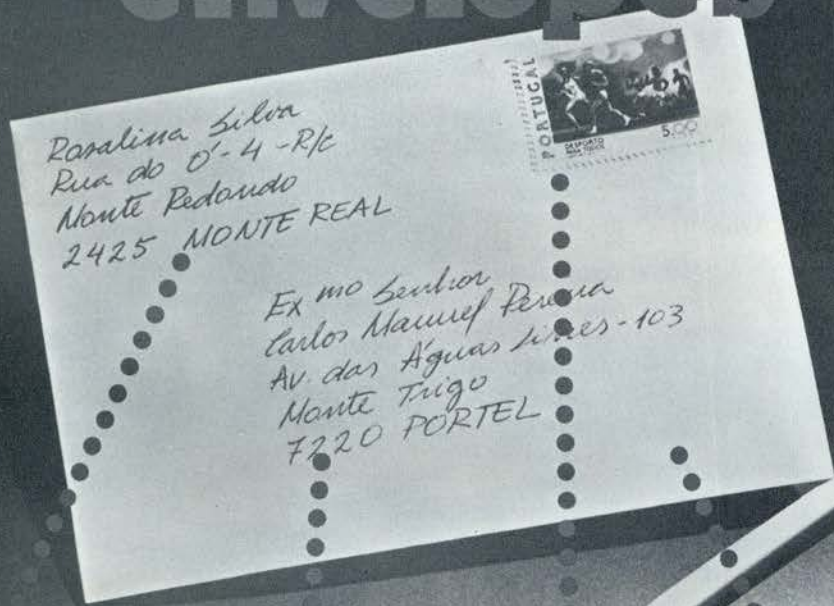 envelopes
Rosalina Silva
Rua do Ó-4-R/c
Monte Redondo
2425 MONTE REAL
PORTUGAL
DESPORTO
PARA TODOS
5.00
Ex mo Senhor
Carlos Manuel Pereira
Av. das Águas Livres-103
Monte Trigo
7220 PORTEL